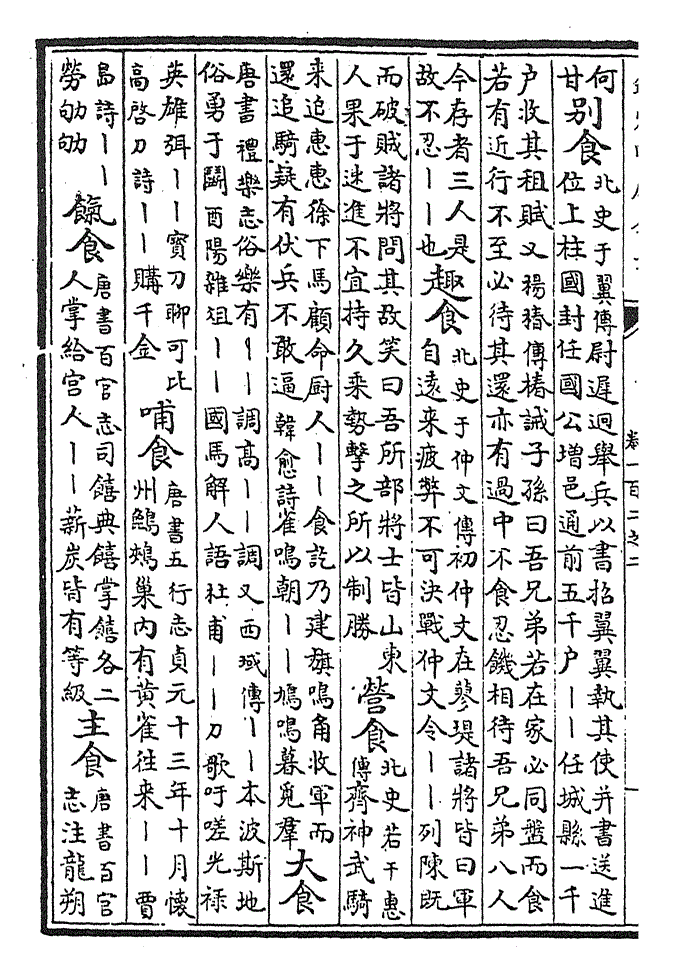 卷一百二之二
何
甘
别食
北史于翼傳尉遲迥舉兵以書招翼翼執其使并書送進
位上柱國封任國公増邑通前五千户丨丨任城縣一千
户收其租賦又楊椿傳椿誡子孫曰吾兄弟若在家必同盤而食
若有近行不至必待其還亦有過中不食忍饑相待吾兄弟八人
今存者三人是
故不忍丨丨也
趣食
北史于仲文傳初仲文在蓼堤諸將皆曰軍
自逺来疲弊不可決戰仲文令丨丨列陳既
而破賊諸將問其故笑曰吾所部將士皆山東
人果于速進不宜持久乗勢擊之所以制勝
營食
北史若干惠
傳齊神武騎
来追惠惠徐下馬顧命厨人丨丨食訖乃建旗鳴角收軍而
還追騎疑有伏兵不敢逼韓愈詩雀鳴朝丨丨鳩鳴暮覓羣
大食
唐書禮樂志俗樂有丨丨調髙丨丨調又西域傳丨丨本波斯地
俗勇于鬭酉陽雜俎丨丨國馬解人語杜甫丨丨刀歌吁嗟光禄
英雄弭丨丨寳刀聊可比
髙啓刀詩丨丨購千金
哺食
唐書五行志貞元十三年十月懷
州鸕鶿巢内有黄雀往来丨丨賈
島詩丨丨
勞劬劬
餼食
唐書百官志司饎典饎掌饎各二
人掌給宫人丨丨薪炭皆有等級
主食
唐書百官
志注龍朔